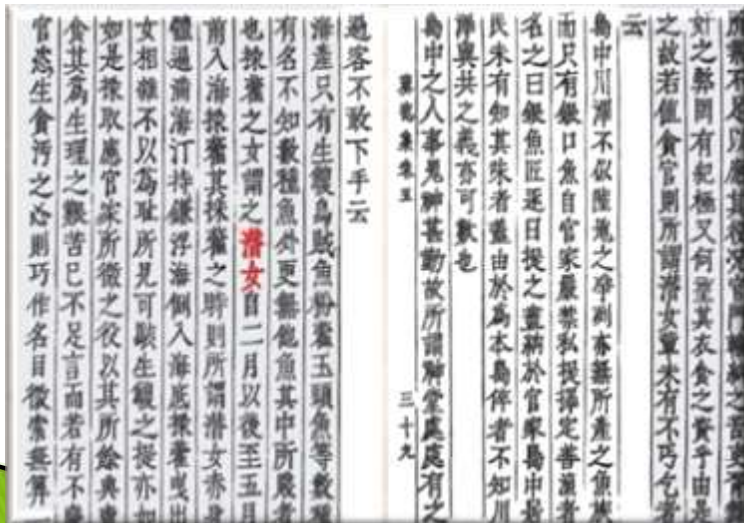 不足以應其役況官門輸納之苦吏胥
奸之弊罔有紀極又何望其衣食之資乎由是
之故若値貪官則所謂潛女輩未有不丐乞者
云
島中川澤不似陸地之孕利亦無所產之魚族
而只有銀口魚自官家嚴禁私捉擇定善漁者
名之曰銀魚匠逐日捉之盡納於官家島中居
民未有知其味者蓋由於爲本島倅者不知川
澤與共之義亦可歎也
島中之人事鬼神甚勤故所謂神堂處處有之
葵窓集卷五
三十九
過客不敢下手云
海產只有生鰒烏賊魚粉藿玉頭魚等數種
有名不知數種魚外更無他魚其中所賤者
也採藿之女謂之潛女自二月以後至五月
前入海採藿其採藿之時則所謂潛女赤身
體遍滿海汀持鎌浮海倒入海底採藿曳出
女相雜不以爲恥所見可駭生鰒之捉亦如
如是採取應官家所徵之役以其所餘典賣
食其爲生理之艱苦已不足言而若有不廉
官恣生貪汚之心則巧作名目徵索無算一